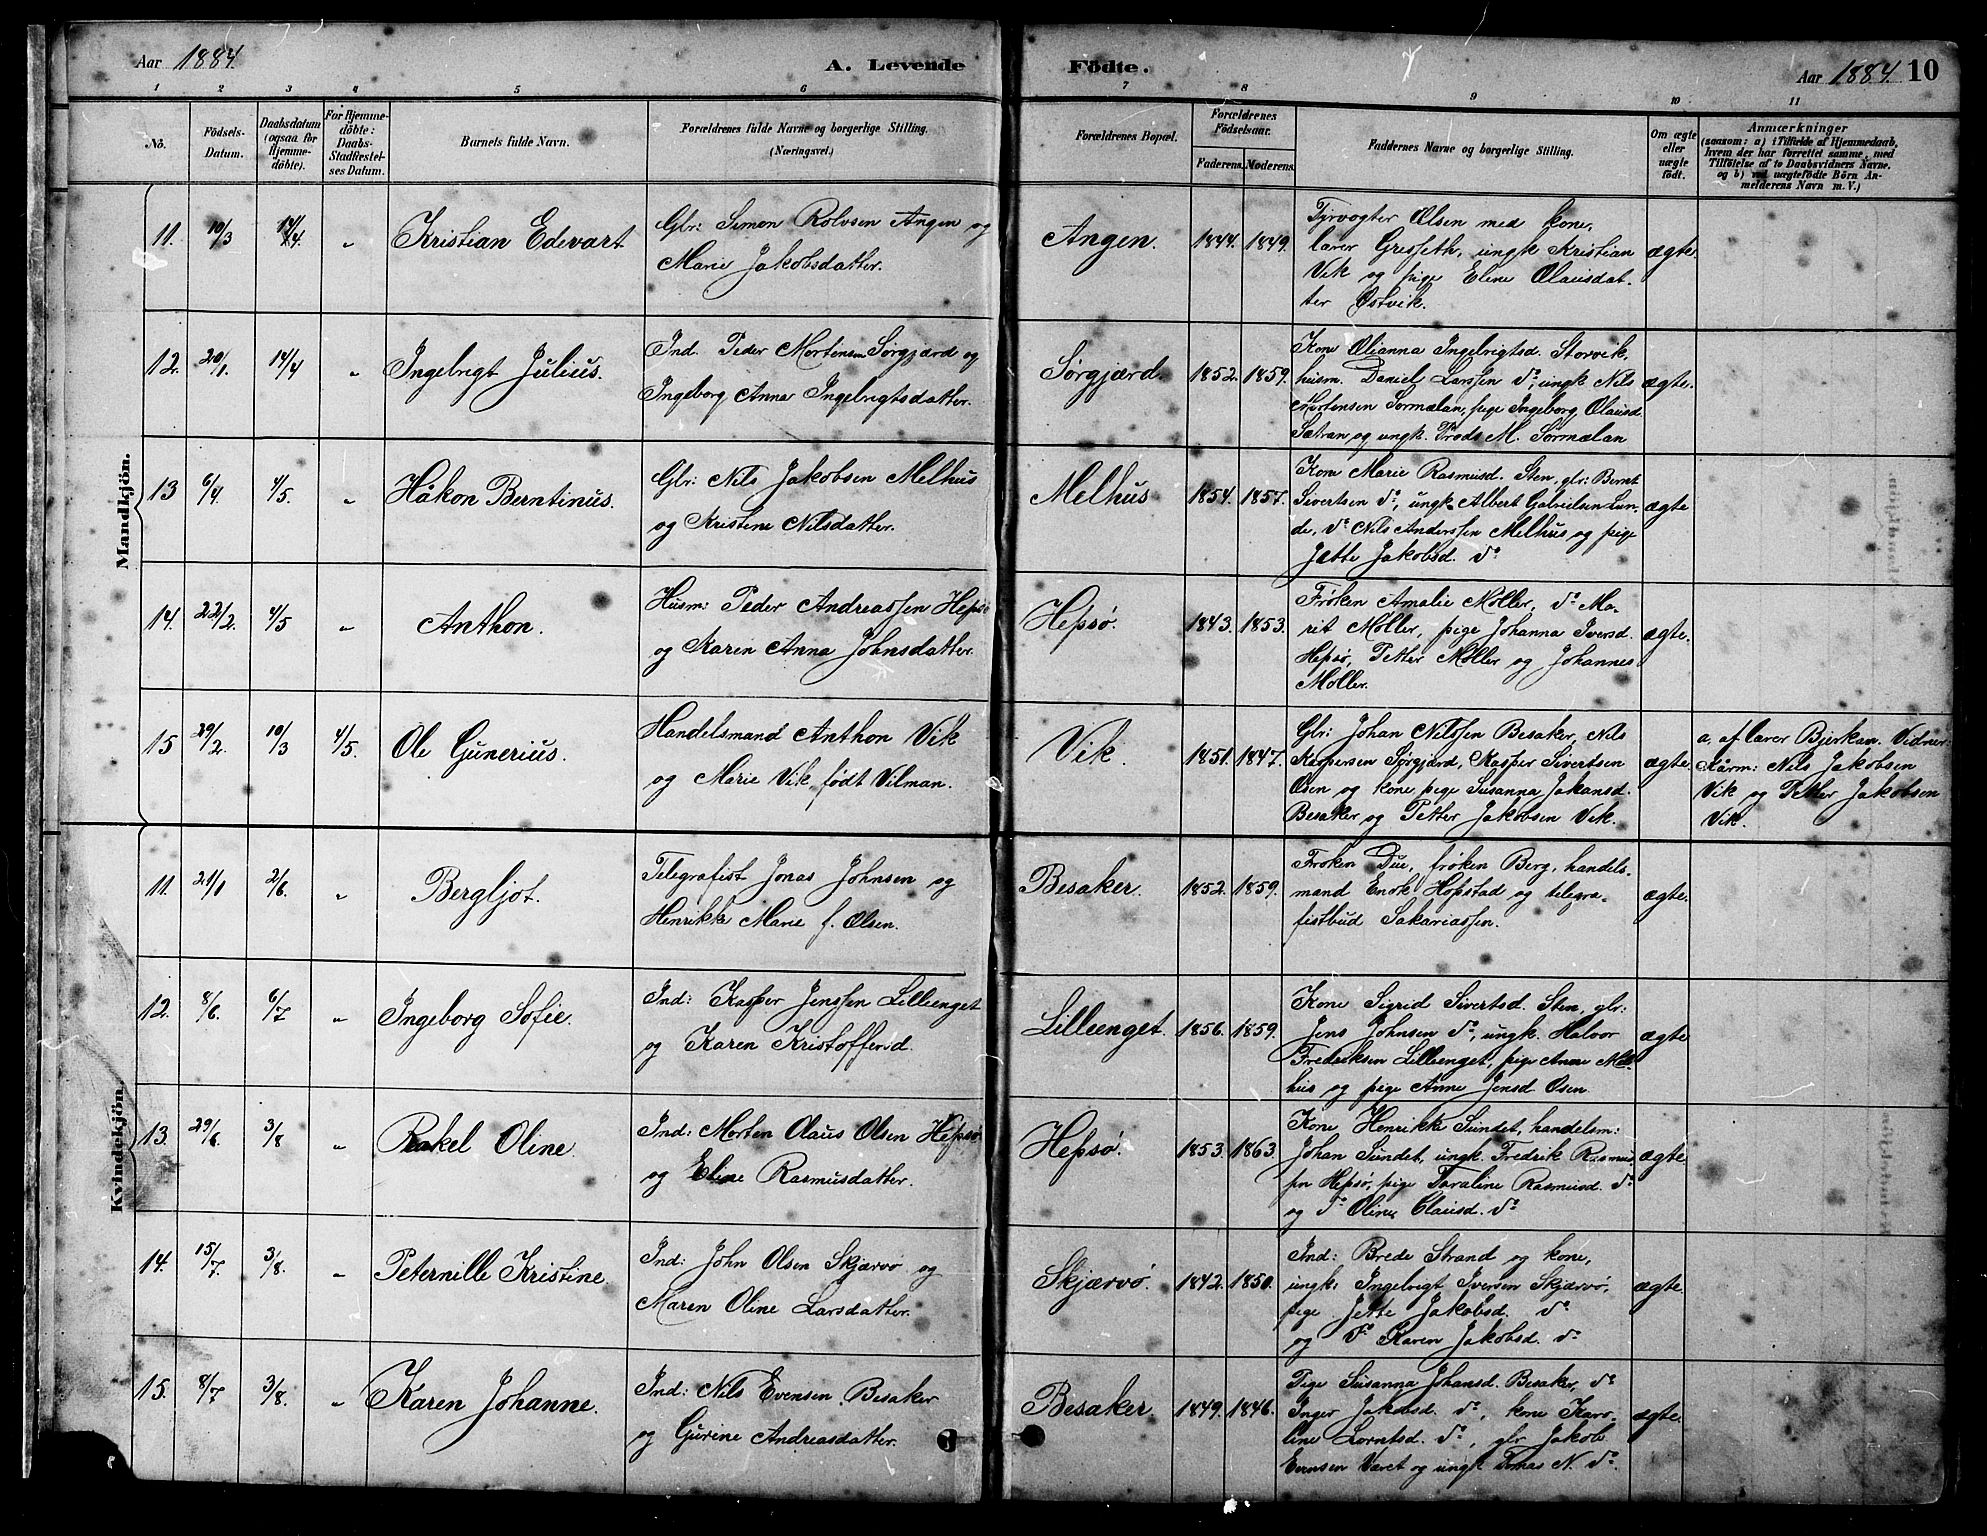 Aar 1884. A. Levende Födte. Aar 1884. 10
1 2 3 4 5 6 7 8 9 10 11
No. Födsels-Datum. Daabsdatum (ogsaa for Hjemme-döbte). For Hjemme-döbte: Daabs-Stadfæstel-ses Datum. Barnets fulde Navn. Forældrenes fulde Navne og borgerlige Stilling. (Næringsvei.) Forældrenes Bopæl. Forældrenes Födselsaar. Faderens. Moderens. Faddernes Navne og borgerlige Stilling. Om ægte eller uægte födt. Anmærkninger (saasom: a) i Tilfælde af Hjemmedaab, hvem der har forrettet samme, med Tilföielse af to Daabsvidners Navne, og b) ved uægtefödte Börn An-melderens Navn m. V.)
Mandkjön.
11. 10/3 14/4 „ Kristian Edevart Gbr: Simon Rolvsen Angen og
Marie Jakobsdatter.
Angen. 1844. 1849.
Fyrvogter Olsen med kone,
lærer Gresseth, ungk Kristian
Vik og pige Eline Olausdat-
ter Østvik.
ægte.
12. 20/1. 14/4 „ Ingebrigt Julius. Ind. Peder Mortensen Sørgjærd og
Ingeborg Anna Ingebrigtsdatter.
Sørgjærd. 1852. 1859.
Kone Olianna Ingebrigtsd. Storvik,
husm. Daniel Larssen do, ungk Nils
Mortensen Sørmælan, pige Ingeborg Olausd.
Sætran og ungk. Trods M. Sørmælan
ægte.
13 6/4. 4/5. „ Håkon Berntinus. Gbr: Nils Jakobsen Melhus
og Kristine Nilsdatter.
Melhus 1854. 1857.
Kone Marie Rasmusd. Sten, gbr: Bernt
Sivertsen do, ungk Albert Gabrielsen Lun-
de, do Nils Anderssen Melhus og pige
Jette Jakobsd. do
ægte
14. 22/2. 4/5 „ Anthon. Husm: Peder Andreassen Hepsø
og Karen Anna Johnsdatter.
Hepsø. 1843. 1853.
Frøken Amalie Møller, do Ma-
rit Møller, pige Johanna Iversd.
Hepsø, Petter Møller og Johannes
Møller.
ægte.
15 29/2. 10/3 4/5. Ole Gunerius. Handelsmand Anthon Vik
og Marie Vik født Vilman.
Vik. 1851. 1847.
Gbr: Johan Nilssen Besaker, Nils
Kaspersen Sørgjærd, Kasper Sivertsen
Osen og kone, pige Susanna Johansd.
Besaker og Petter Jakobsen Vik.
ægte.
a, af lærer Bjerkan. Vidner:
Kårm: Nils Jakobsen
Vik og Petter Jakobsen
Vik.
Kvindekjön.
11. 21/1 2/6. „ Bergljot. Telegrafist Jonas Johnsen og
Henrikke Marie f. Olsen.
Besaker. 1852. 1859.
Frøken Due, frøken Berg, handels-
mand Enok Hopstad og telegra-
fistbud Sakariassen.
ægte.
12. 8/6. 6/7 „ Ingeborg Sofie. Ind: Kasper Jenssen Lilleenget
og Karen Kristoffersd.
Lilleenget. 1856. 1859.
Kone Sigrid Sivertsd. Sten, gbr:
Jens Johnsen do, ungk. Halvor
Fredriksen Lilleenget, pige Anne Mel-
hus og pige Anne Jensd Osen
ægte
13. 29/6. 3/8 „ Rakel Oline. Ind: Morten Olaus Olsen Hepsø
og Eline Rasmusdatter.
Hepsø. 1853. 1863.
Kone Henrikke Sundet, handelsm:
Johan Sundet, ungk. Fredrik Rasmus-
sen Hepsø, pige Taraline Rasmusd. do
og do Oline Olausd. do
ægte
14. 15/7. 3/8. „ Peternille Kristine Ind: John Olsen Skjærvø og
Maren Oline Larsdatter.
Skjærvø. 1842. 1850.
Ind: Brede Strand og kone,
ungk: Ingebrigt Iversen Skjærvø,
pige Jette Jakobsd. do
og do Karen Jakobsd. do
ægte.
15. 8/7 3/8. „ Karen Johanne. Ind: Nils Evensen Besaker
og Gurine Andreasdatter.
Besaker. 1849. 1846.
Pige Susanna Johansd. Besaker, do
Inger Jakobsd. do, kone Karo-
line Lorntsd. do, gbr Jakob
Evensen Været og ungk Tomas N. do.
ægte.